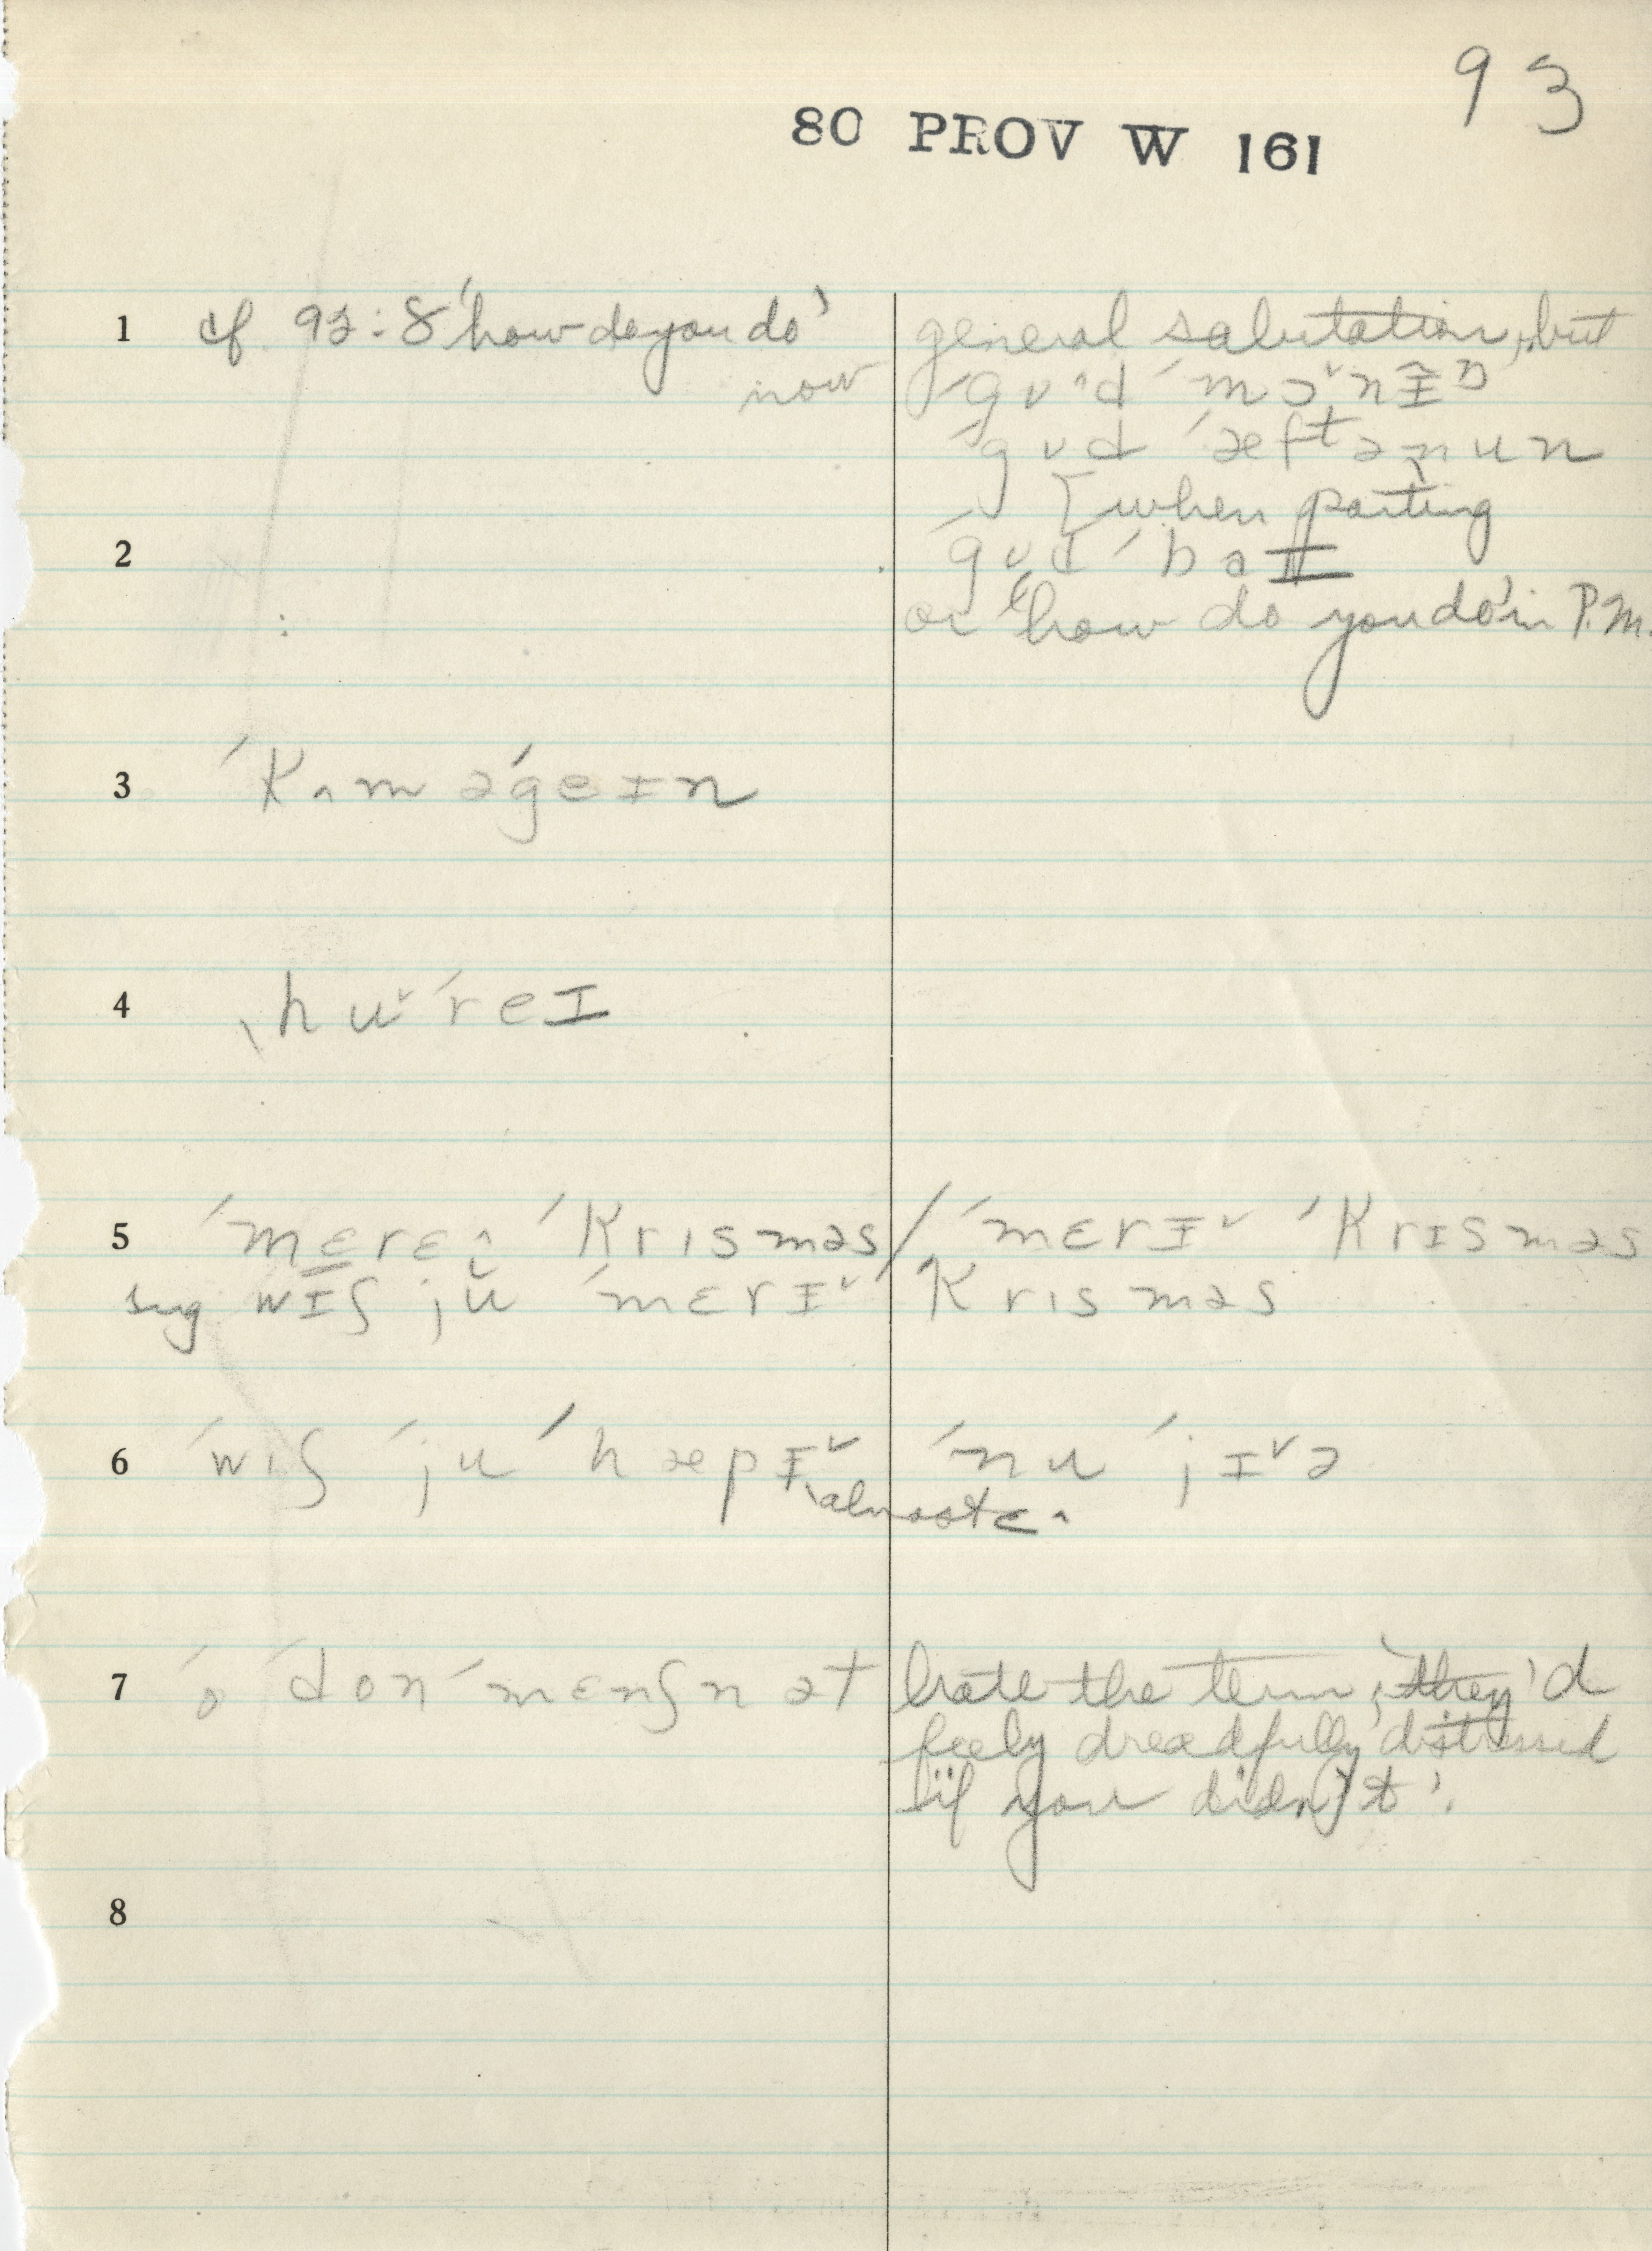 93
80 PROV W 161
1 cf 92:8 'how do you do' general salutation, but
now ˈgʊ^d ˈmɔ˅nɪŋ
ˈgʊd ˈæftənun
[when parting
2 ˈgʊd ˈbaɪ
or 'how do you do' in P.M.
3 ˈkʌm əˈgeɪn
4 ˌhu˅ˈreɪ
5 ˈmɛrɛ^ ˈkrɪsməs / ˈmɛrɪ˅ ˈkrɪsməs
sug wɪʃ ju ˈmɛrɪ˅ ˈkrɪsməs
6 ˈwɪʃ ˈju ˈhæpɪ˅ ˈnu ˈjɪ˅ə
almost ɛ^
7 ˈo ˈdon ˈmɛnʃn ət hate the term; 'they'd
feel dreadfully distressed
if you didn't'.
8